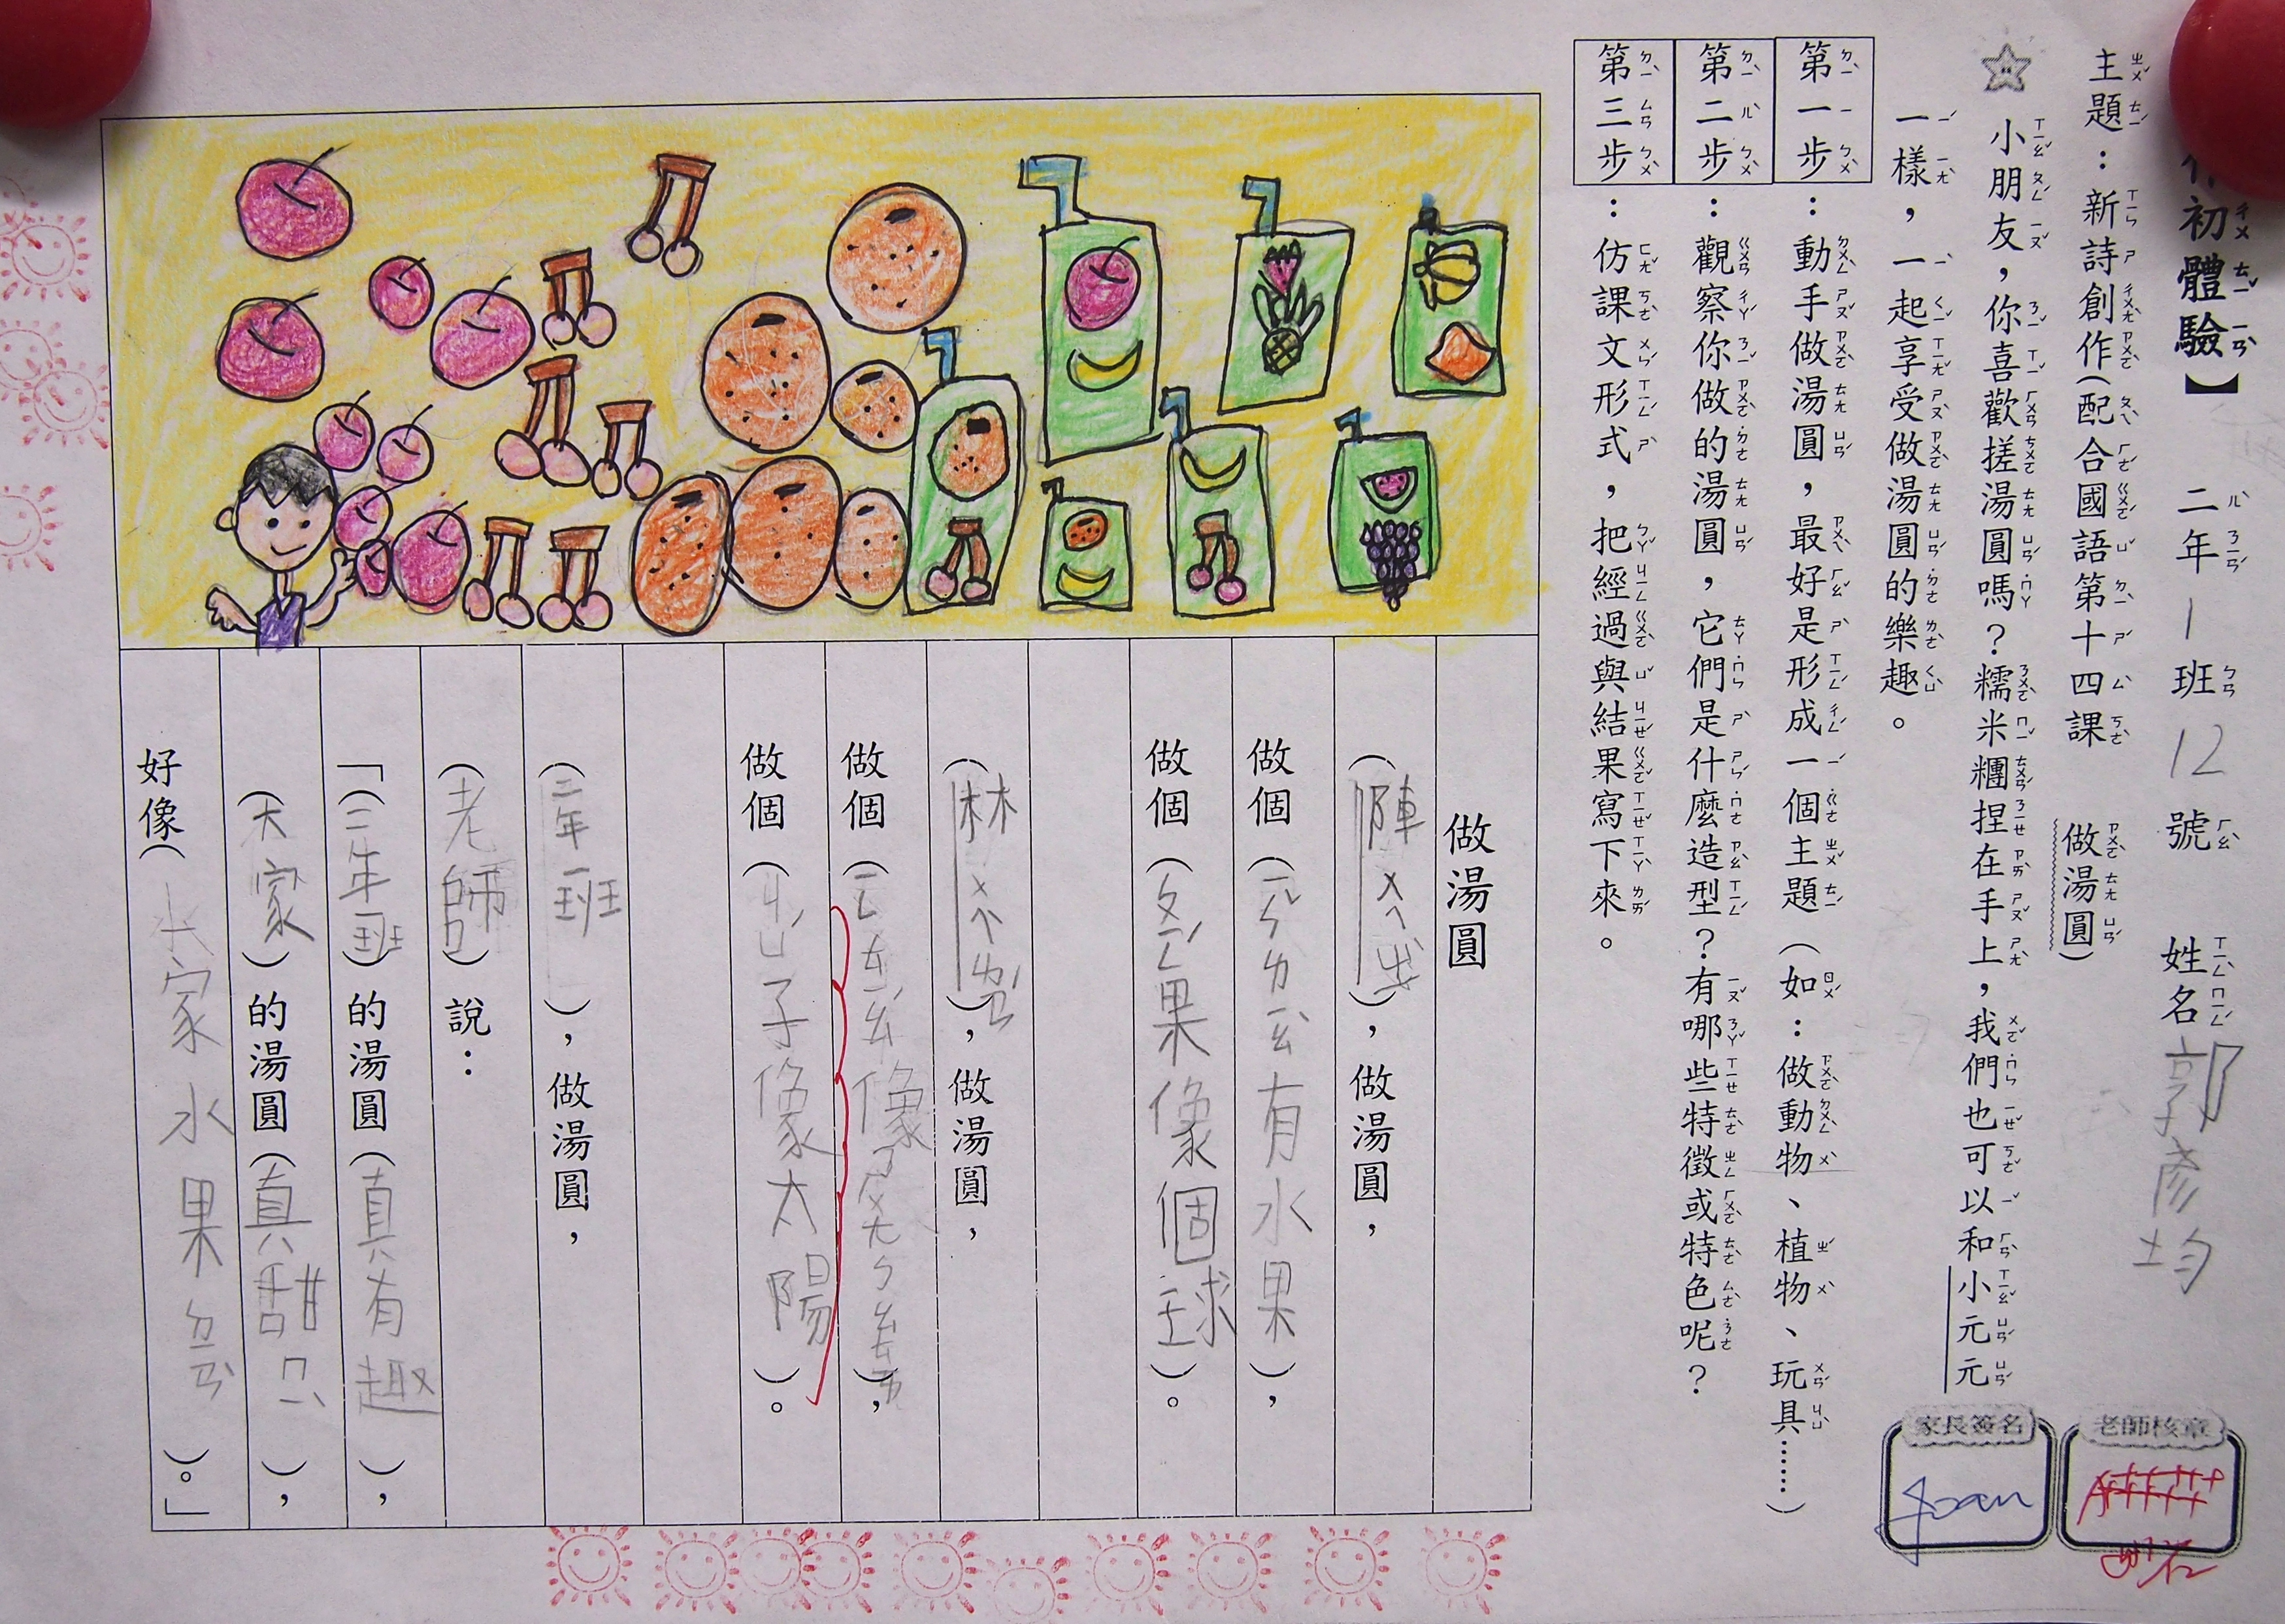 作初體驗】 二年1班12號 姓名郭彥均
主題：新詩創作(配合國語第十四課 做湯圓)
小朋友，你喜歡搓湯圓嗎？糯米糰捏在手上，我們也可以和小元元
一樣，一起享受做湯圓的樂趣。
第一步：動手做湯圓，最好是形成一個主題（如：做動物、植物、玩具……）
第二步：觀察你做的湯圓，它們是什麼造型？有哪些特徵或特色呢？
第三步：仿課文形式，把經過與結果寫下來。
老師核章
家長簽名
Joan
做湯圓
(陳ㄨㄟˊ)，做湯圓，
做個(ㄧㄣˇㄌㄧㄠˋ有水果)，
做個(ㄆㄧㄥˊ果像個球)。
(林ㄨㄟˊ)，做湯圓，
做個(像)，
做個(ㄐㄩˊ子像太陽)。
(二年一班)，做湯圓，
(老師)說：
「(二年一班)的湯圓(真有趣)，
(大家)的湯圓(真甜ㄇㄧˋ)，
好像(大家水果ㄈㄣ)。」